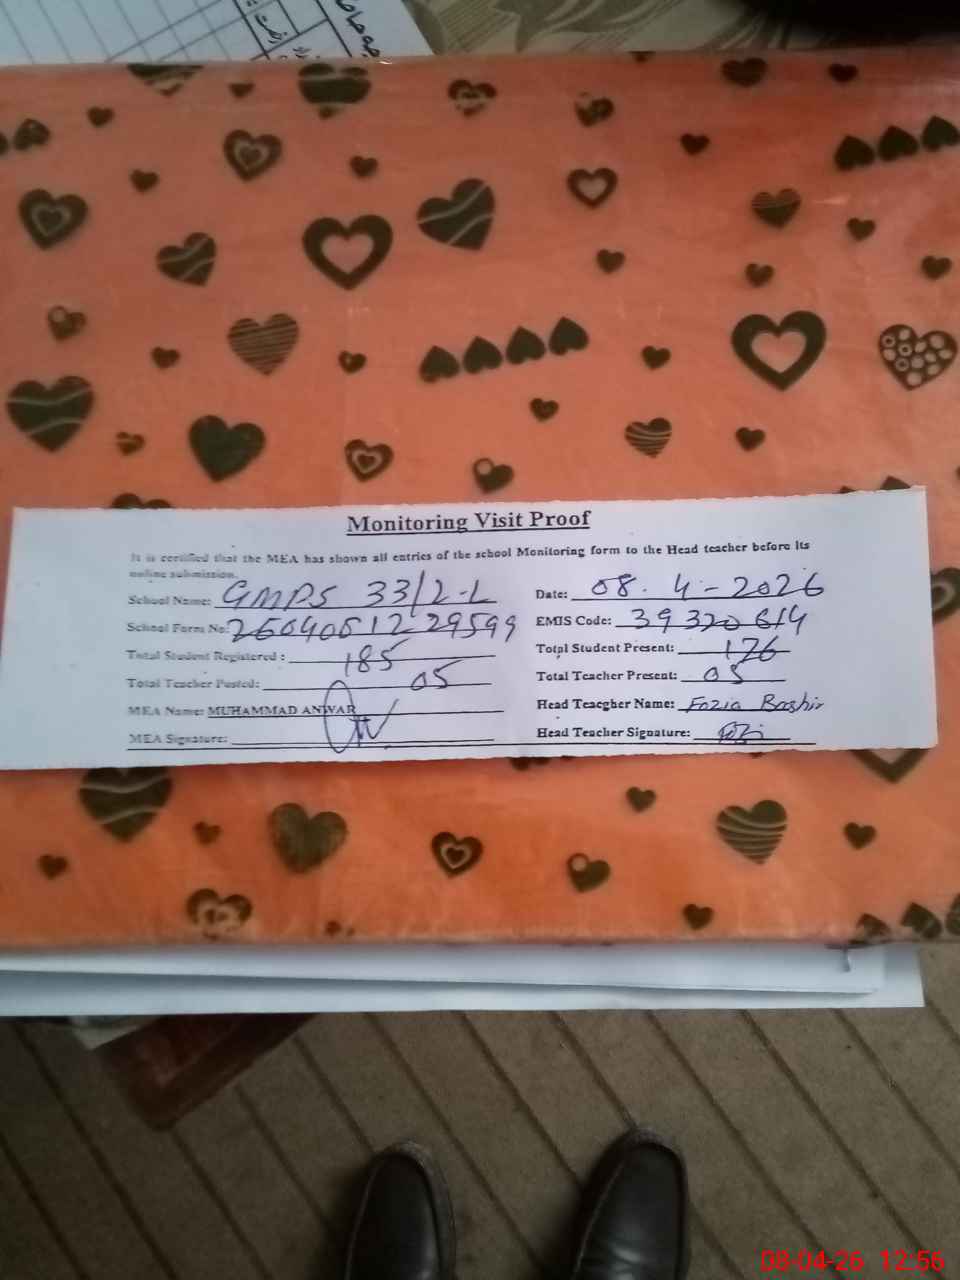 Monitoring Visit Proof
It is certified that the MEA has shown all entries of the school Monitoring form to the Head teacher before its
online submission.
School Name: GMPS 33/2-L Date: 08-4-2026
School Form No: 26040612 29599 EMIS Code: 39320614
Total Student Registered : 185 Total Student Present: 176
Total Teacher Posted: 05 Total Teacher Present: 05
MEA Name: MUHAMMAD ANWAR Head Teacgher Name: Fozia Bashir
MEA Signature: Head Teacher Signature:
08-04-26 12:56